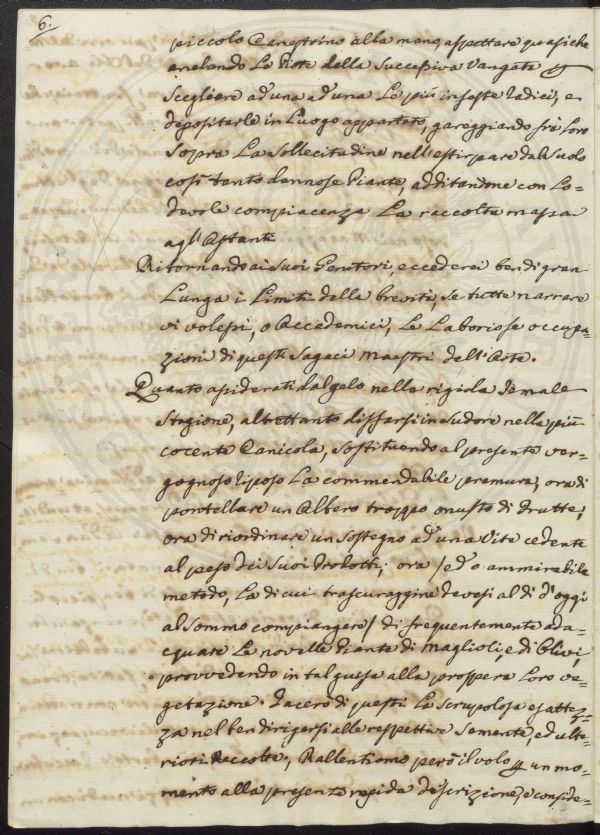 6.
piccolo Canestrino alla mano, aspettare quasi che
anelando Le Piote della Successiva Vangata p
Scegliere ad una ad una Le più infeste Radici, e
depositarle in Luogo appartato, gareggiando frà Loro
Sopra La Sollecitudine nell'estirpare dal Suolo
così tanto dannose Piante, additandone con Lo-
devole compiacenza La raccolta massa
agl'Astanti
Ritornando ai Suoi Genitori, eccederei ben di gran
Lunga i Limiti della brevità, se tutte narrare
vi volessi, o Accademici, Le Laboriose occupa-
zioni di questi Sagaci maestri dell'Arte.
Quanto assiderati dal gelo nella rigida Iemale
Stagione, altrettanto disfarsi in Sudore nella più
cocente Canicola, Sostituendo al presente ver-
gognoso riposo La commendabile premura, ora di
pontellare un Albero troppo onusto di Frutte,
ora di riordinare un Sostegno ad una Vite cedente
al peso dei Suoi Prodotti; ora /ed o ammirabile
metodo, La di cui trascuraggine devesi al dì d'oggi
al Sommo compiangere/ di frequentemente ada-
cquare Le novelle Piante di maglioli, e di Olivi,
provvedendo in tal guisa alla prospera Loro ve-
getazione. Tacerò di questi La Scrupolosa esattez-
za nel ben dirigersi alle rispettive Sementa, ed ulte-
riori Raccolte; Rallentiamo però il volo p un mo-
mento alla presente rapida descrizione, e conside-